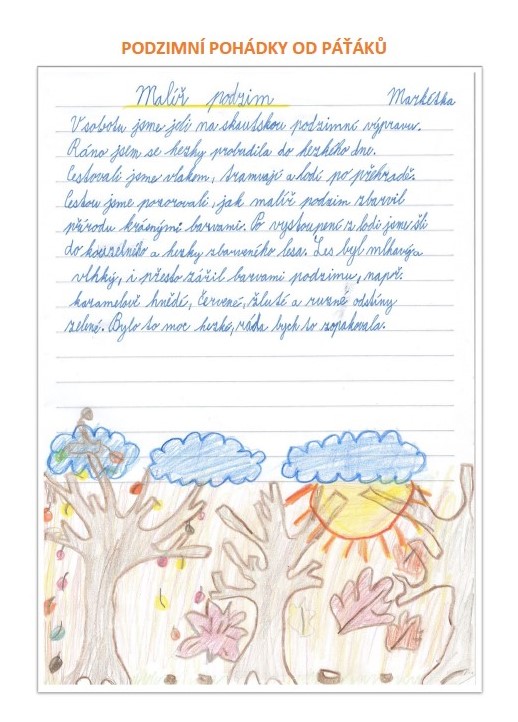 PODZIMNÍ POHÁDKY OD PÁŤÁKŮ
Malíř podzim Markétka
V sobotu jsme jeli na skautskou podzimní výpravu.
Ráno jsem se hezky probudila do hezkého dne.
Cestovali jsme vlakem, tramvají a lodí po přehradě.
Cestou jsme pozorovali, jak malíř podzim zbarvil
přírodu krásnými barvami. Po vystoupení z lodi jsme šli
do kouzelného a hezky zbarveného lesa. Les byl mlhavý a
vlhký, i přesto zářil barvami podzimu, např.
karamelově hnědé, červené, žluté a ruzné odstíny
zelené. Bylo to moc hezké, ráda bych to zopakovala.